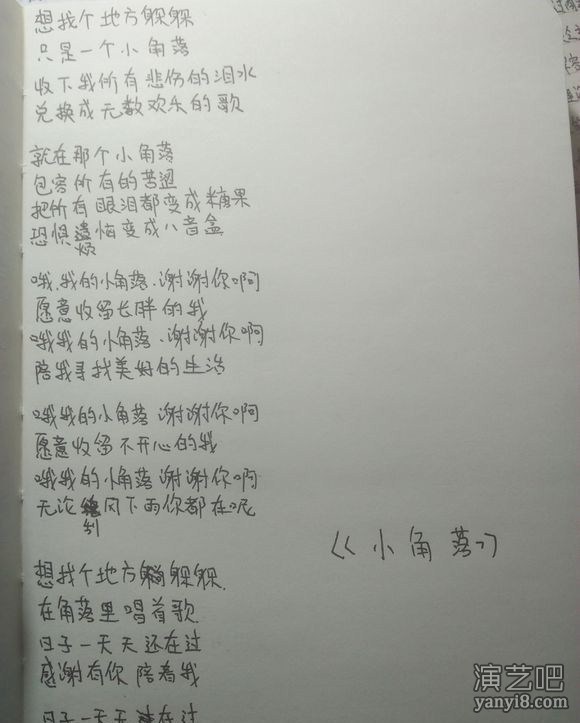 想找个地方躲躲
只是一个小角落
收下我所有悲伤的泪水
兑换成无数欢乐的歌
就在那个小角落
包容所有的苦涩
把所有眼泪都变成糖果
恐惧烦恼变成八音盒
哦,我的小角落、谢谢你啊
愿意收留长胖的我
哦我的小角落、谢谢你啊
陪我寻找美好的生活
哦我的小角落谢谢你啊
愿意收留不开心的我
哦我的小角落谢谢你啊
无论刮风下雨你都在呢
《小角落》
想找个地方躲躲
在角落里唱首歌
日子一天天还在过
感谢有你陪着我
日子一天天还在过
演艺吧
yanyi8.com